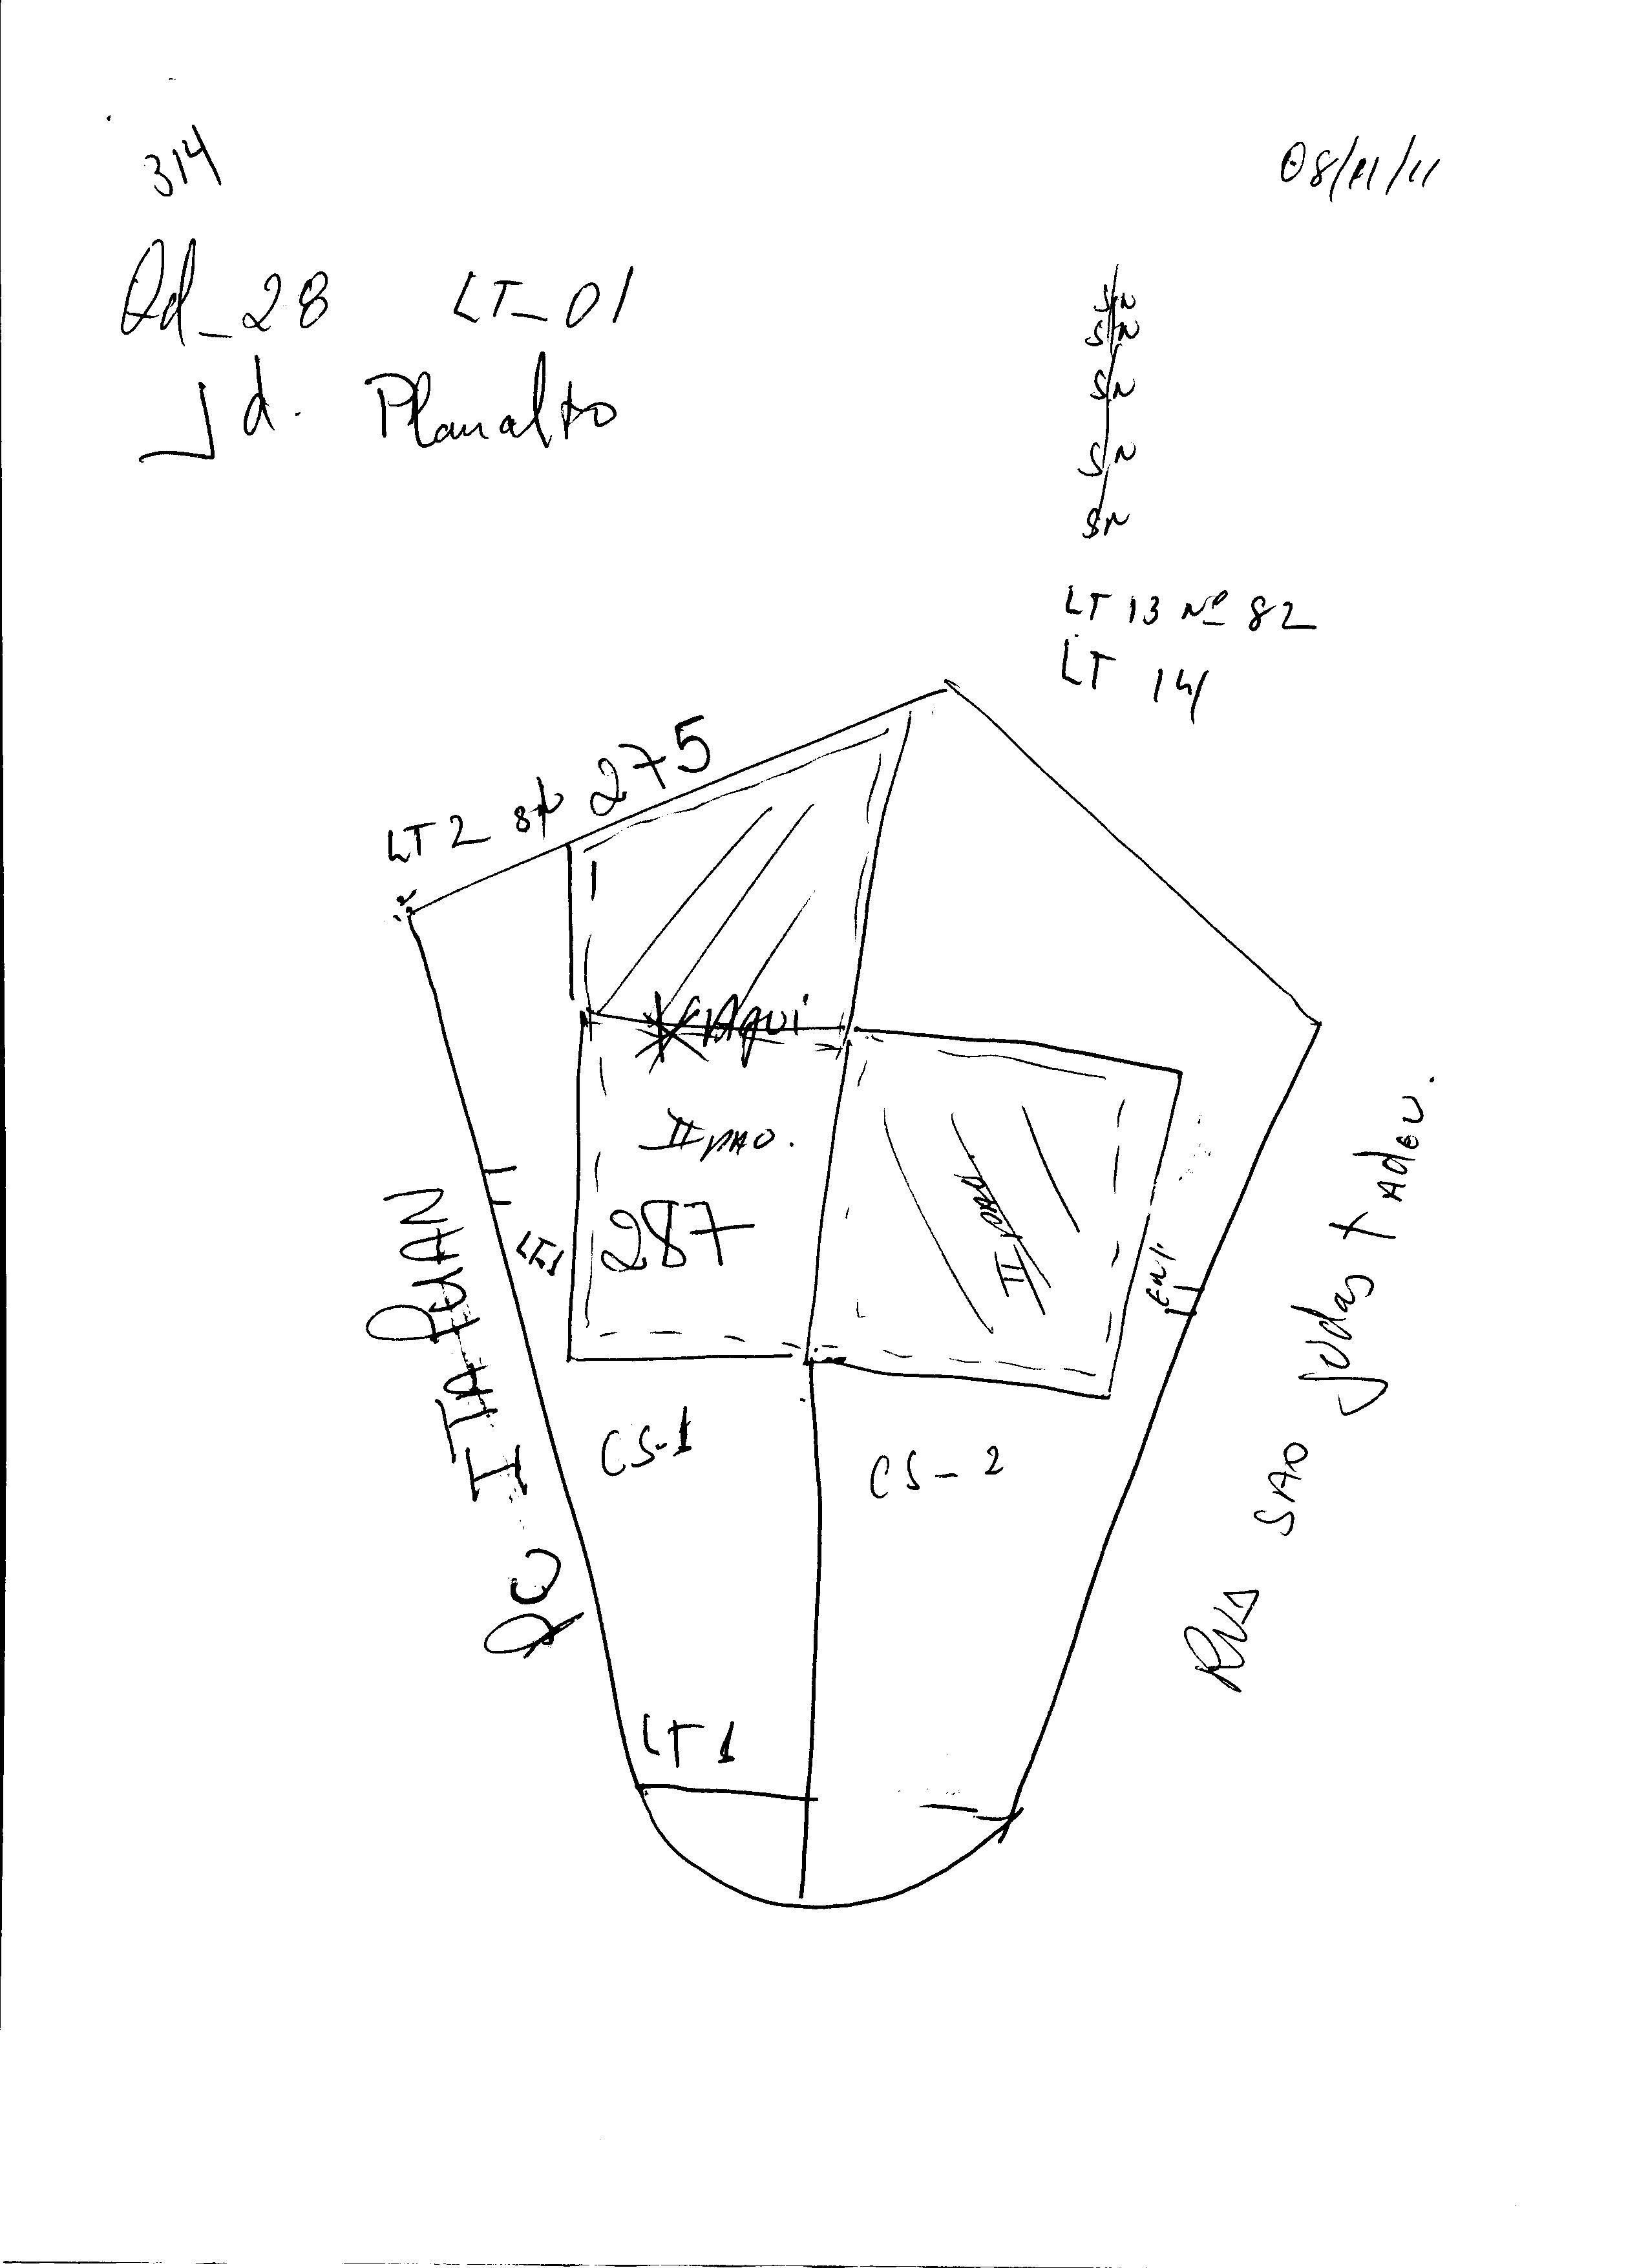 314
08/11/11
Qd_28 LT_01
Jd. Planalto
S/N
S/N
S/N
S/N
S/N
LT 13 Nº 82
LT 14
LT 2 S/N 275
Aqui
II PAO.
287
II PAO.
LT1
ENT
CS-1
CS-2
ITAPUAN
RUA SAO JUDAS TADEU.
LT 1